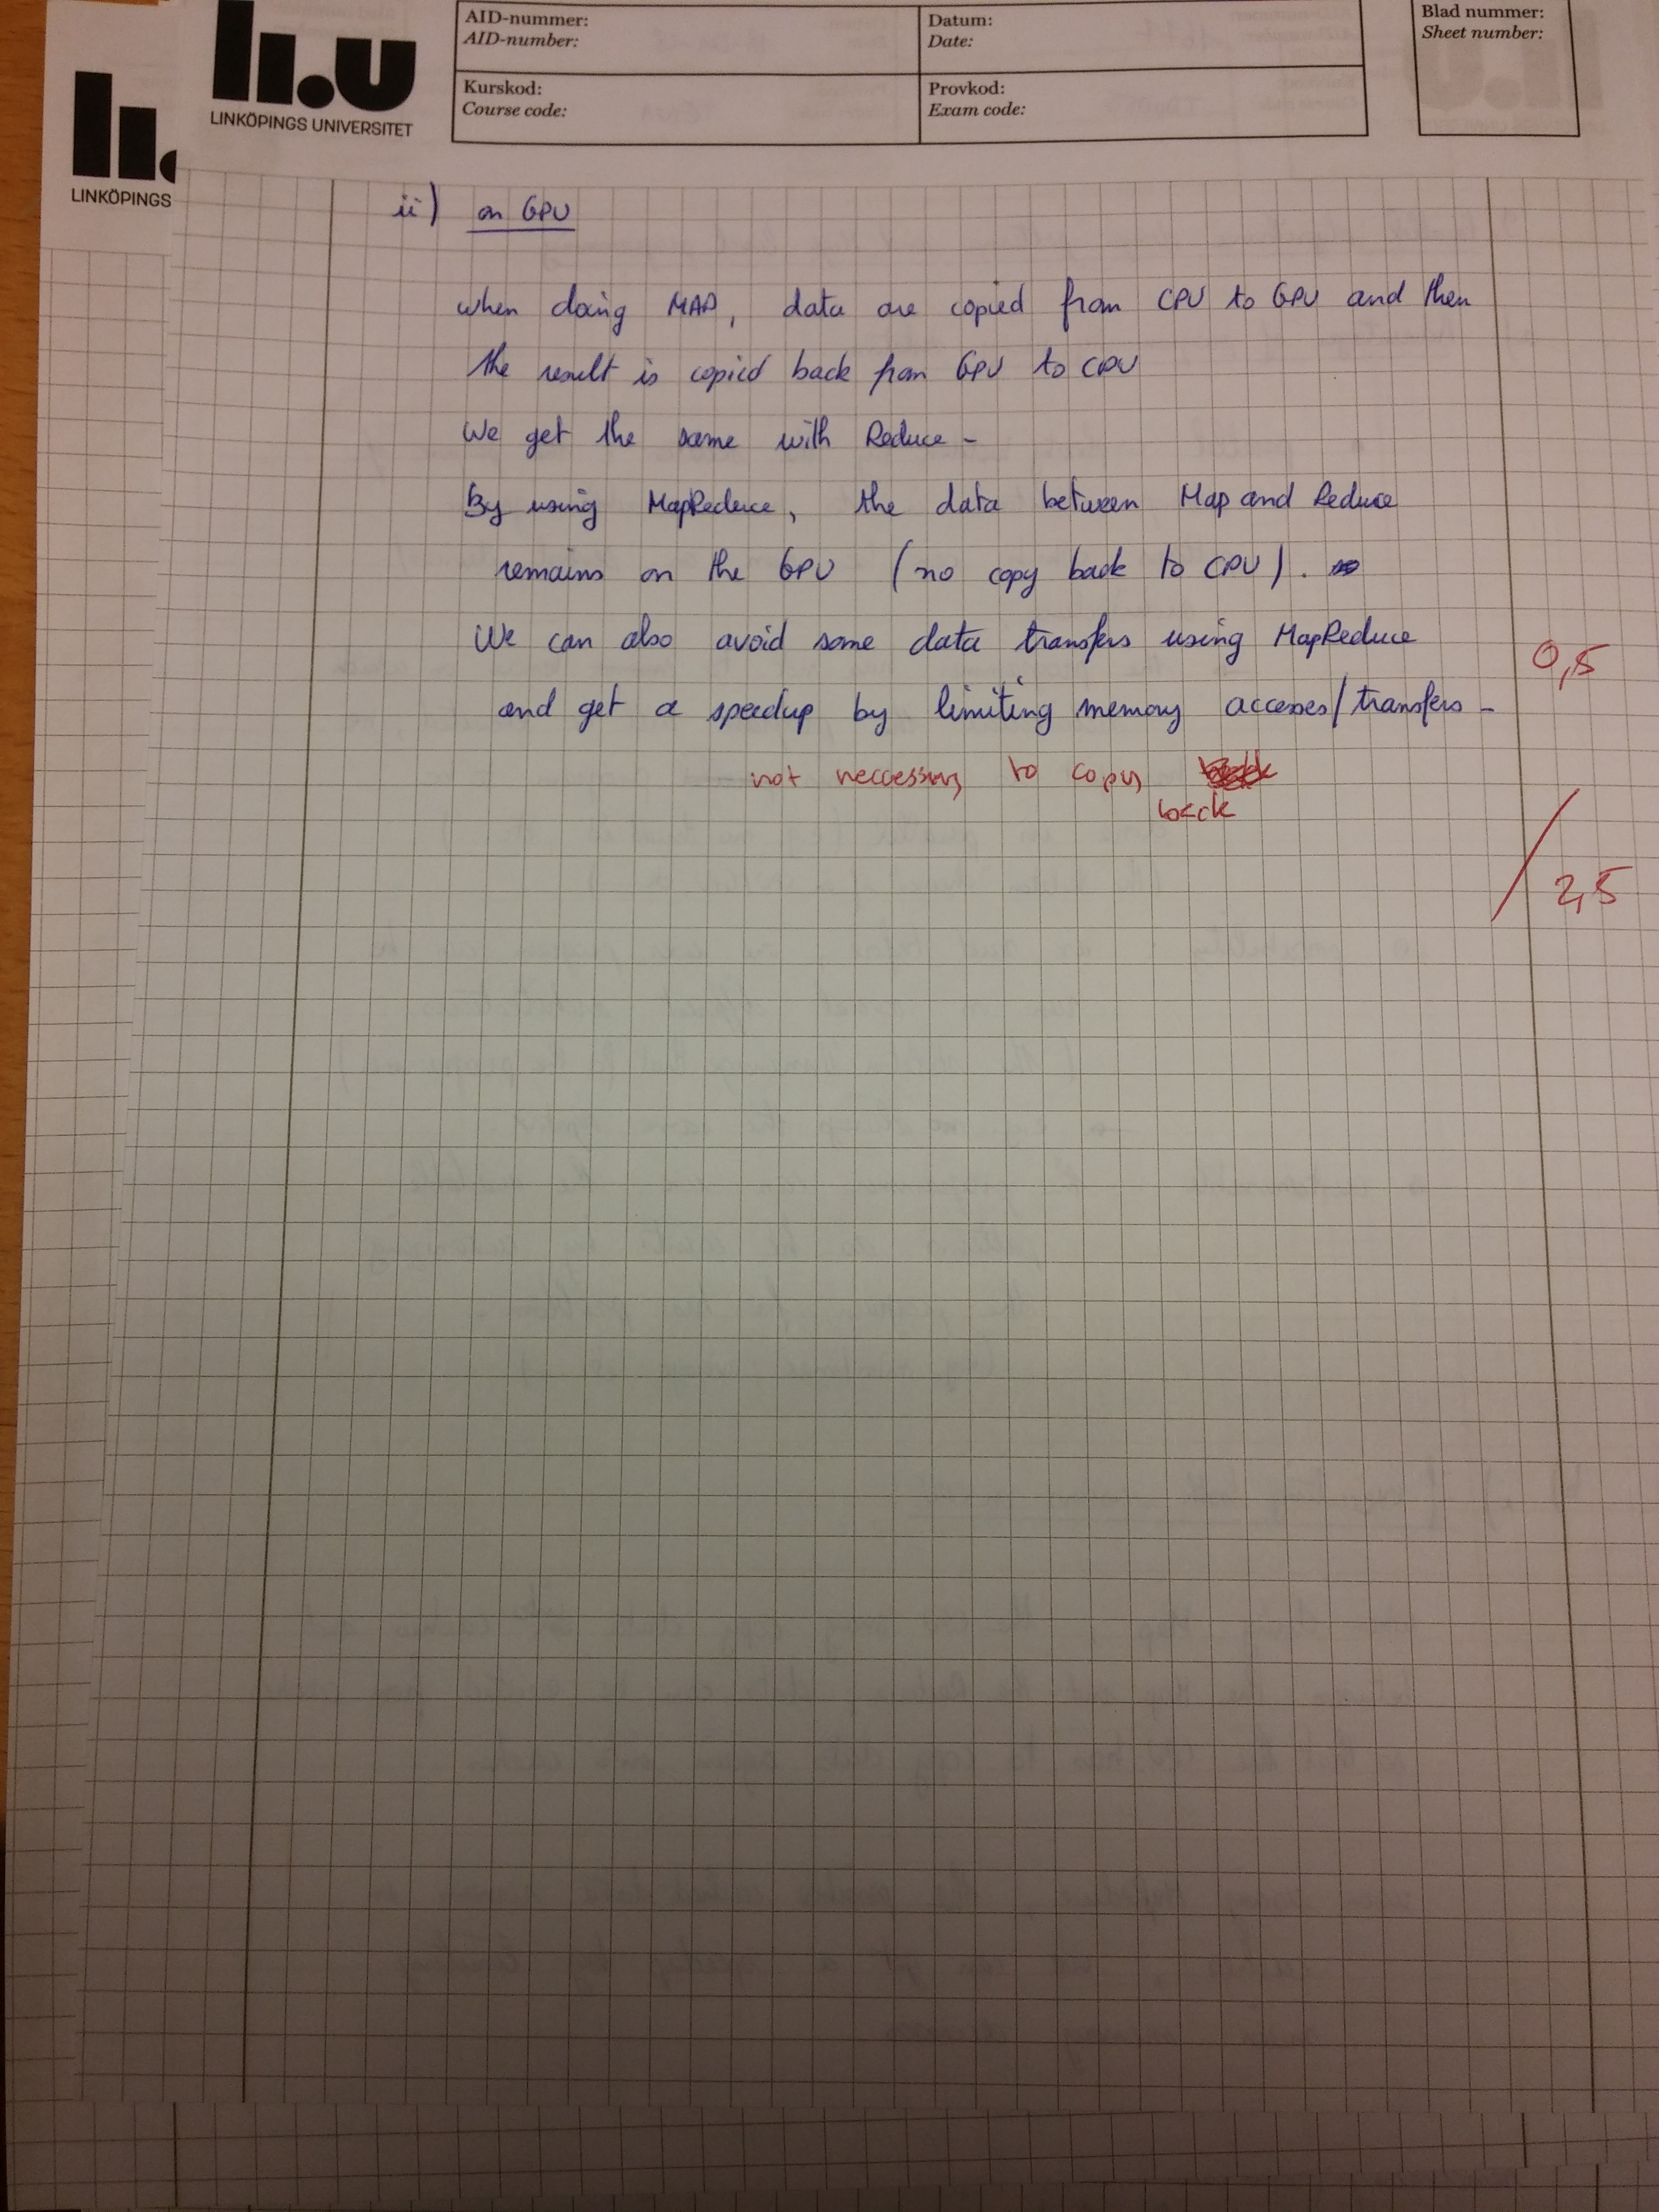 AID-nummer:
AID-number:
Datum:
Date:
Blad nummer:
Sheet number:
Kurskod:
Course code:
Provkod:
Exam code:
li.u
LINKÖPINGS UNIVERSITET
li.
LINKÖPINGS
ii) on GPU
when doing MAP, data are copied from CPU to GPU and then
the result is copied back from GPU to CPU
We get the same with Reduce -
By using MapReduce, the data between Map and Reduce
remains on the GPU (no copy back to CPU).
We can also avoid some data transfers using MapReduce
0,5
and get a speedup by limiting memory accesses/transfers -
not neccessary to copy
back
/ 2,5